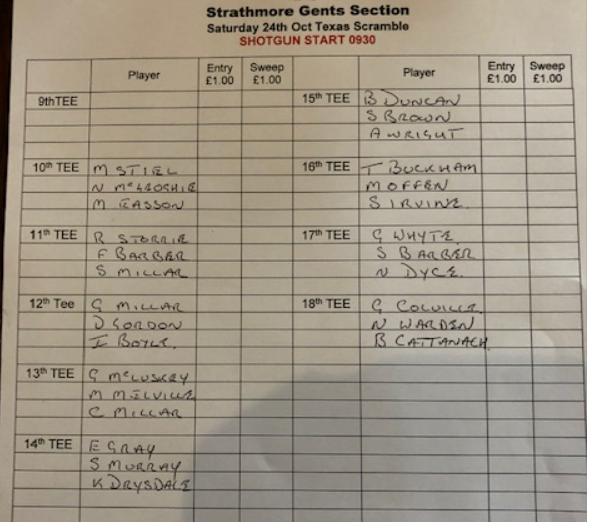 Strathmore Gents Section
Saturday 24th Oct Texas Scramble
SHOTGUN START 0930
Player Entry £1.00 Sweep £1.00 Player Entry £1.00 Sweep £1.00
9thTEE
10th TEE M STIEL
N McLROSHIE
M EASSON
11th TEE R STORRIE
F BARBER
S MILLAR
12th Tee G MILLAR
D GORDON
I BOYLE.
13th TEE G McLUSKEY
M MELVILLE
C MILLAR
14th TEE E GRAY
S MURRAY
K DRYSDALE
15th TEE B DUNCAN
S BROWN
A WRIGHT
16th TEE T BUCKHAM
M OFFEN
S IRVINE.
17th TEE G WHYTE.
S BARBER
N DYCE.
18th TEE G COLVILLE
N WARDEN
B CATTANACH